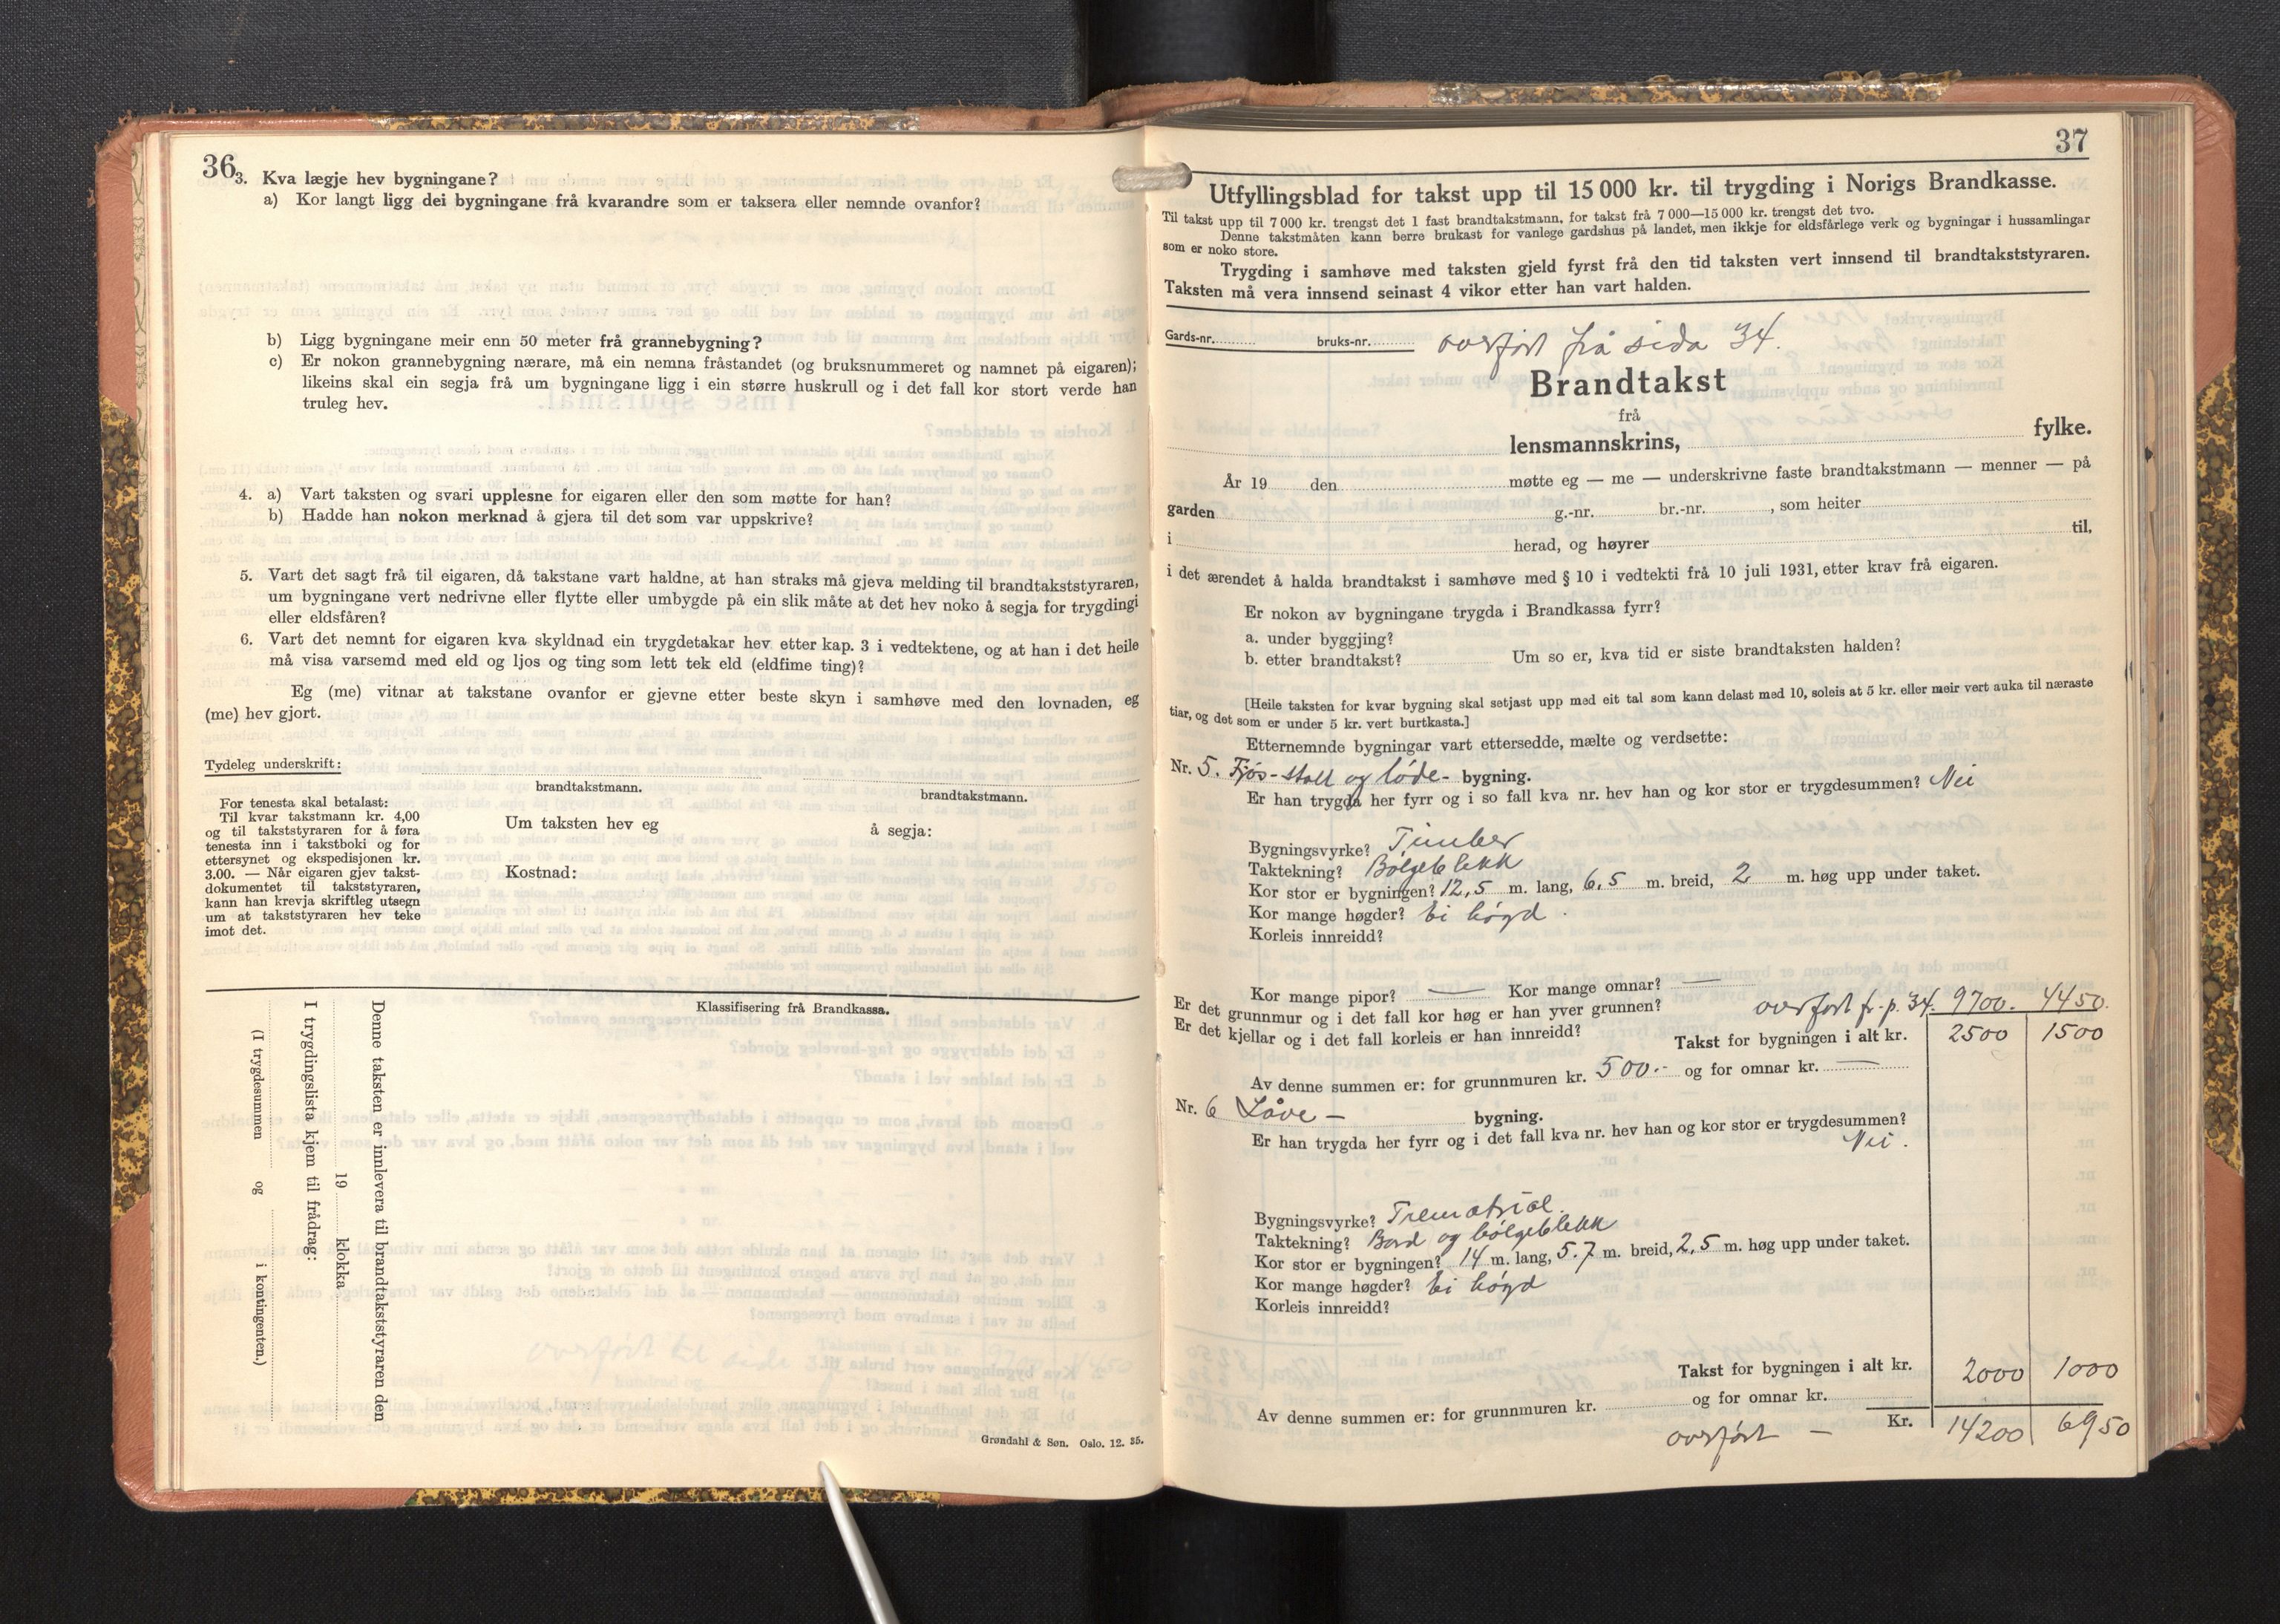 36
3. Kva lægje hev bygningane?
a) Kor langt ligg dei bygningane frå kvarandre som er taksera eller nemnde ovanfor?
b) Ligg bygningane meir enn 50 meter frå grannebygning?
c) Er nokon grannebygning nærare, må ein nemna fråstandet (og bruksnummeret og namnet på eigaren);
likeins skal ein segja frå um bygningane ligg i ein større huskrull og i det fall kor stort verde han
truleg hev.
4. a) Vart taksten og svari upplesne for eigaren eller den som møtte for han?
b) Hadde han nokon merknad å gjera til det som var uppskrive?
5. Vart det sagt frå til eigaren, då takstane vart haldne, at han straks må gjeva melding til brandtakststyraren,
um bygningane vert nedrivne eller flytte eller umbygde på ein slik måte at det hev noko å segja for trygdingi
eller eldsfåren?
6. Vart det nemnt for eigaren kva skyldnad ein trygdetakar hev etter kap. 3 i vedtektene, og at han i det heile
må visa varsemd med eld og ljos og ting som lett tek eld (eldfime ting)?
Eg (me) vitnar at takstane ovanfor er gjevne etter beste skyn i samhøve med den lovnaden, eg
(me) hev gjort.
Tydeleg underskrift:
brandtakstmann. brandtakstmann.
For tenesta skal betalast:
Til kvar takstmann kr. 4,00
og til takststyraren for å føra
tenesta inn i takstboki og for
ettersynet og ekspedisjonen kr.
3.00. — Når eigaren gjev takst-
dokumentet til takststyraren,
kann han krevja skriftleg utsegn
um at takststyraren hev teke
imot det.
Um taksten hev eg å segja:
Kostnad:
Klassifisering frå Brandkassa.
Denne taksten er innlevera til brandtakststyraren den
19 klokka
I trygdingslista kjem til frådrag:
(I trygdesummen og i kontingenten.)
Grøndahl & Søn. Oslo. 12. 35.
37
Utfyllingsblad for takst upp til 15 000 kr. til trygding i Norigs Brandkasse.
Til takst upp til 7 000 kr. trengst det 1 fast brandtakstmann, for takst frå 7 000—15 000 kr. trengst det tvo.
Denne takstmåten kann berre brukast for vanlege gardshus på landet, men ikkje for eldsfårlege verk og bygningar i hussamlingar
som er noko store.
Trygding i samhøve med taksten gjeld fyrst frå den tid taksten vert innsend til brandtakststyraren.
Taksten må vera innsend seinast 4 vikor etter han vart halden.
Gards-nr. bruks-nr. overført frå sida 34.
Brandtakst
frå
lensmannskrins, fylke.
År 19 den møtte eg — me — underskrivne faste brandtakstmann — menner — på
garden g.-nr. br.-nr. , som heiter
i herad, og høyrer til,
i det ærendet å halda brandtakst i samhøve med § 10 i vedtekti frå 10 juli 1931, etter krav frå eigaren.
Er nokon av bygningane trygda i Brandkassa fyrr?
a. under byggjing?
b. etter brandtakst? Um so er, kva tid er siste brandtaksten halden?
[Heile taksten for kvar bygning skal setjast upp med eit tal som kann delast med 10, soleis at 5 kr. eller meir vert auka til næraste
tiar, og det som er under 5 kr. vert burtkasta.]
Etternemnde bygningar vart ettersedde, mælte og verdsette:
Nr. 5. Fjós-stall og lóde- bygning.
Er han trygda her fyrr og i so fall kva nr. hev han og kor stor er trygdesummen? Nei
Bygningsvyrke? Timber
Taktekning? Bølgeblekk
Kor stor er bygningen? 12,5 m. lang, 6,5 m. breid, 2 m. høg upp under taket.
Kor mange høgder? ei høgd.
Korleis innreidd?
Kor mange pipor? — Kor mange omnar? —
Er det grunnmur og i det fall kor høg er han yver grunnen? overført fr. p. 34. 9700. 4450.
Er det kjellar og i det fall korleis er han innreidd? Takst for bygningen i alt kr. 2500 1500
Av denne summen er: for grunnmuren kr. 500.- og for omnar kr. —
Nr. 6 Låve — bygning.
Er han trygda her fyrr og i det fall kva nr. hev han og kor stor er trygdesummen?
Nei.
Bygningsvyrke? Trematrial.
Taktekning? Bord og bølgeblekk
Kor stor er bygningen? 14 m. lang, 5.7 m. breid, 2,5 m. høg upp under taket.
Kor mange høgder? ei høgd
Korleis innreidd?
Takst for bygningen i alt kr. 2000 1000
Av denne summen er: for grunnmuren kr. og for omnar kr.
overført — Kr. 14200 6950